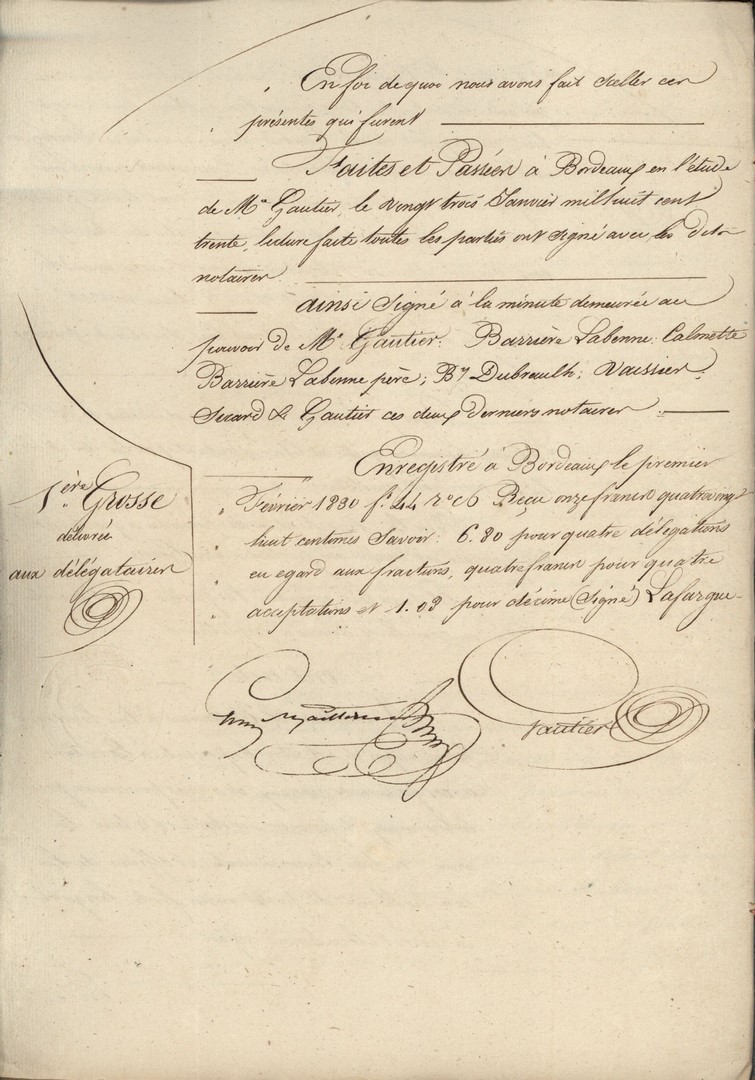 En foi de quoi nous avons fait sceller ces
présentes qui furent
Faites et Passées à Bordeaux en l'étude
de Me Gautier, le vingt trois Janvier mil huit cent
trente, lecture faite toutes les parties ont signé avec les dits
notaires.
ainsi signé à la minute demeurée au
pouvoir de Me Gautier: Barrière Labenne: Calmette
Barrière Labenne père; By Dubreuilh; Vaissier;
Sicard & Gautier ces deux derniers notaires.
Enregistré à Bordeaux le premier
Février 1830 fo. 44 ro c6 Reçu onze francs quatre vingt
huit centimes Savoir: 6.80 pour quatre délégations
eu egard aux fractions, quatre francs pour quatre
acceptations et 1.08 pour décime (signé) Lafargue
1ère Grosse
délivrée
aux délégataires
Gautier